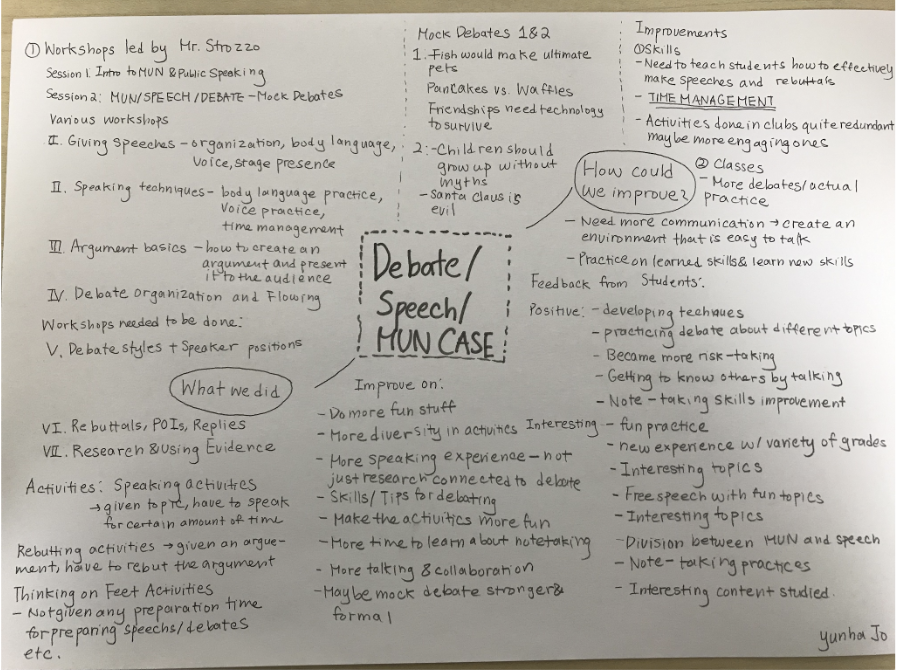 ① Workshops led by Mr. Strozzo
Session 1: Intro to MUN & Public Speaking
Session 2: MUN/SPEECH/DEBATE - Mock Debates
Various workshops
I. Giving Speeches - organization, body language,
voice, stage presence
II. Speaking techniques - body language practice,
voice practice,
time management
III. Argument basics - how to create an
argument and present
it to the audience
IV. Debate Organization and Flowing
Workshops needed to be done:
V. Debate styles + Speaker positions
What we did
VI. Rebuttals, POIs, Replies
VII. Research & Using Evidence
Activities: Speaking activities
→ given topic, have to speak
for certain amount of time
Rebutting activities → given an argue-
ment, have to rebut the argument
Thinking on Feet Activities
- Not given any preparation time
for preparing speechs/debates
etc.
Mock Debates 1&2
1. Fish would make ultimate
pets
Pancakes vs. Waffles
Friendships need technology
to survive
2: - Children should
grow up without
myths
- Santa Claus is
evil
Debate/
Speech/
MUN CASE
Improve on:
- Do more fun stuff
- More diversity in activities
- More speaking experience - not
just research connected to debate
- Skills/Tips for debating
- Make the activities more fun
- More time to learn about notetaking
- More talking & collaboration
- Maybe mock debate stronger &
formal
Improvements
① Skills
- Need to teach students how to effectively
make speeches and rebuttals
- TIME MANAGEMENT
- Activities done in clubs quite redundant
maybe more engaging ones
How could
we improve?
② Classes
- More debates/actual
practice
- Need more communication → create an
environment that is easy to talk
- Practice on learned skills & learn new skills
Feedback from Students:
Positive: - developing techniques
- practicing debate about different topics
- Became more risk-taking
- Getting to know others by talking
- Note-taking skills improvement
Interesting - fun practice
- new experience w/ variety of grades
- Interesting topics
- Free speech with fun topics
- Interesting topics
- Division between MUN and speech
- Note-taking practices
- Interesting content studied.
Yunha Jo